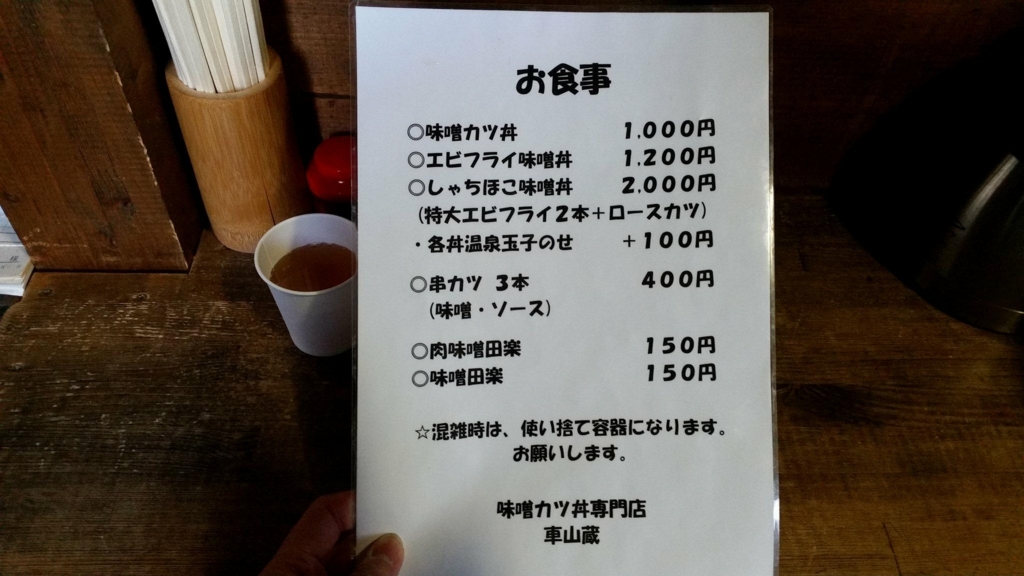 お食事
○味噌カツ丼 1,000円
○エビフライ味噌丼 1,200円
○しゃちほこ味噌丼 2,000円
(特大エビフライ2本+ロースカツ)
・各丼温泉玉子のせ +100円
○串カツ 3本 400円
(味噌・ソース)
○肉味噌田楽 150円
○味噌田楽 150円
☆混雑時は、使い捨て容器になります。
お願いします。
味噌カツ丼専門店
車山蔵